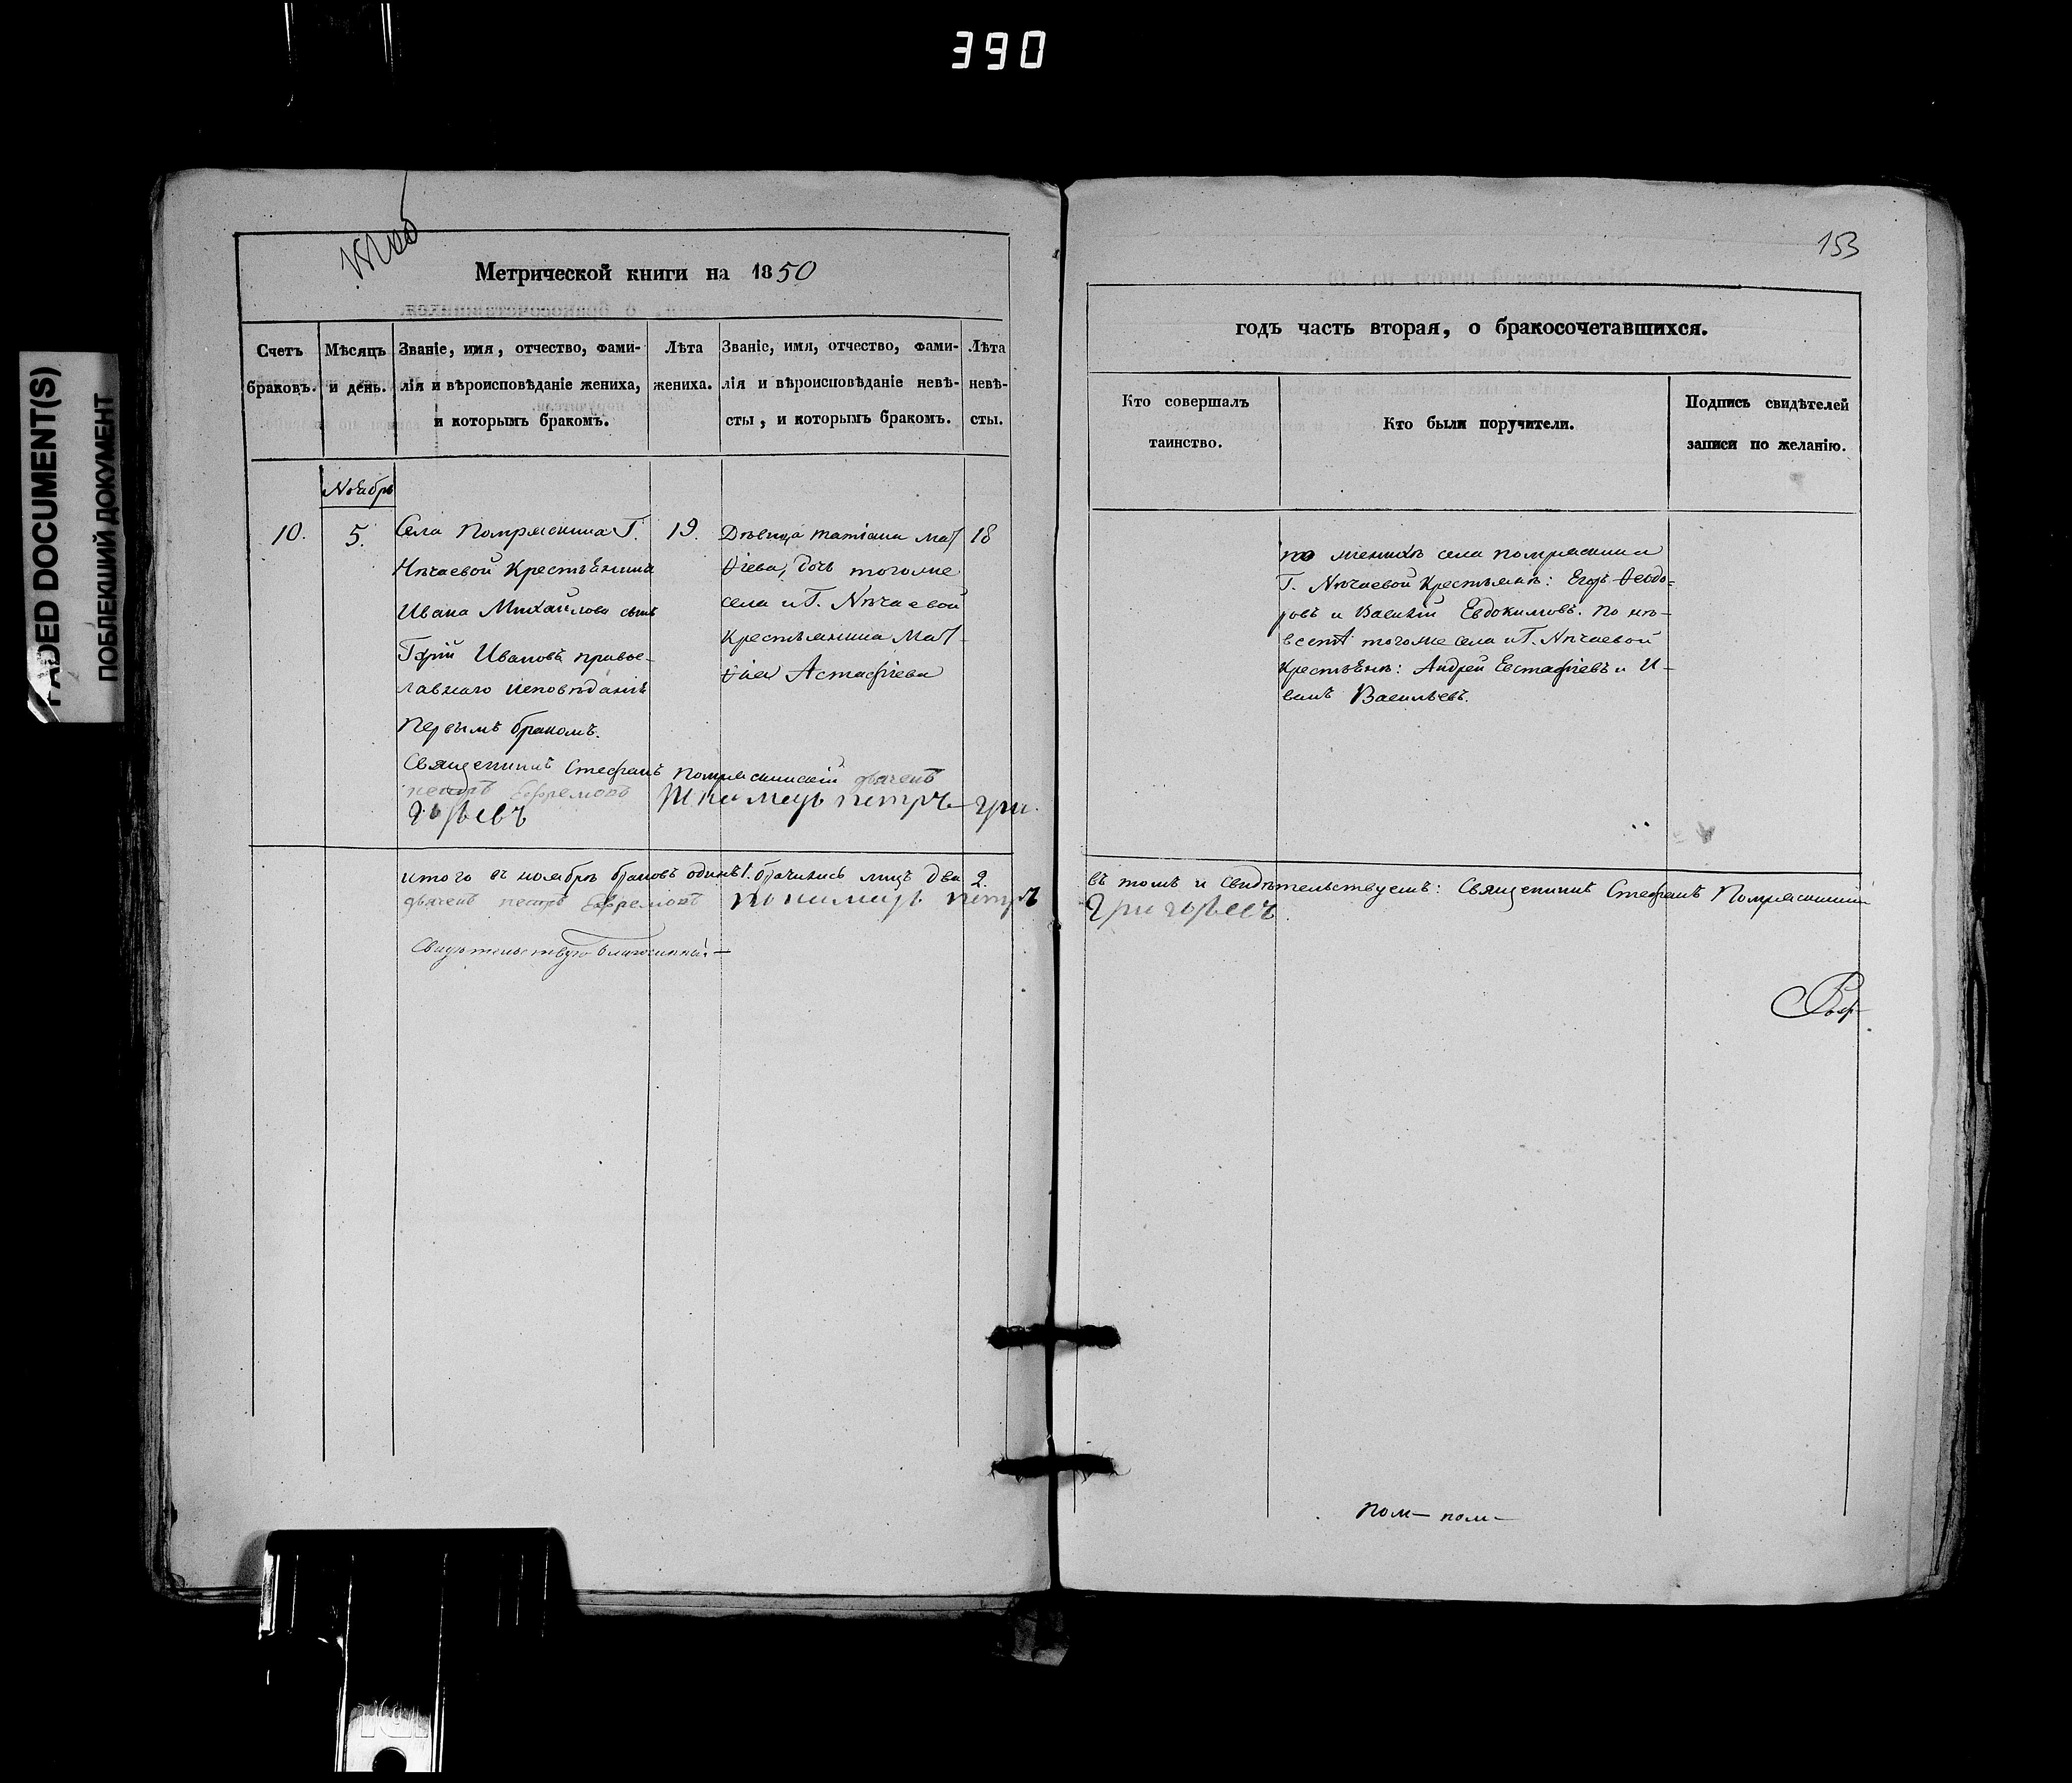 390
FADED DOCUMENT(S)
ПОБЛЕКШИЙ ДОКУМЕНТ
Метрической книги на 1850
Счетъ браковъ.
Мѣсяцъ и день.
Званіе, имя, отчество, фами-
лія и вѣроисповѣданіе жениха,
и которымъ бракомъ.
Лѣта
жениха.
Званіе, имя, отчество, фами-
лія и вѣроисповѣданіе невѣ-
сты, и которымъ бракомъ.
Лѣта
невѣ-
сты.
Ноябрь
10.
5.
Села Помряскина Г.
Нѣчаевой Крестьянина
Ивана Михайлова сынъ
Ивановъ правос-
лавнаго исповѣданія
Первымъ бракомъ.
19.
Дѣвица татіана Мат
ѳіева, дочь тогоже
села и Г. Нѣчаевой
Крестьянина Мат-
ѳіея Астафіева
18
Священникъ Стефанъ Помряскинскій дьяченъ
петръ Ефремовъ Пономарь петръ гри
горьевъ
итого въ ноябрѣ браковъ одинъ 1. брачились лицъ два 2.
дьяченъ петръ Ефремовъ пономарь петръ
Свидѣтельствую благочинный
153
годъ часть вторая, о бракосочетавшихся.
Кто совершалъ
таинство.
Кто были поручители.
Подпись свидѣтелей
записи по желанію.
по женихѣ села помряскина
Г. Нѣчаевой Крестьянѣ: Егоръ Ѳеодо=
ровъ и Василій Евдокимовъ. По нѣ-
вестѣ тогоже села и Г. Нѣчаевой
Крестьянѣ: Андрей Евстафіевъ и И-
ванъ Васильевъ.
въ томъ и свидѣтельствуемъ: Священникъ Стефанъ Помряскинскій
Григорьевъ.
пом- пом-